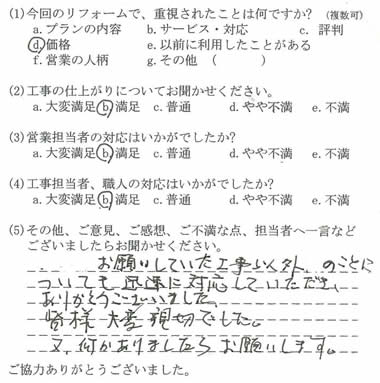 (1)今回のリフォームで、重視されたことは何ですか? (複数可)
a.プランの内容 b.サービス・対応 c. 評判
d.価格 e.以前に利用したことがある
f.営業の人柄 g.その他 ( )
(2)工事の仕上がりについてお聞かせください。
a.大変満足 b.満足 c.普通 d.やや不満 e.不満
(3)営業担当者の対応はいかがでしたか?
a.大変満足 b.満足 c.普通 d.やや不満 e.不満
(4)工事担当者、職人の対応はいかがでしたか?
a.大変満足 b.満足 c.普通 d.やや不満 e.不満
(5)その他、ご意見、ご感想、ご不満な点、担当者へ一言など
ございましたらお聞かせください。
お願いしていた工事以外のことに
ついても迅速に対応していただき、
ありがとうございました。
皆様大変親切でした。
又、何かありましたらお願いします。
ご協力ありがとうございました。